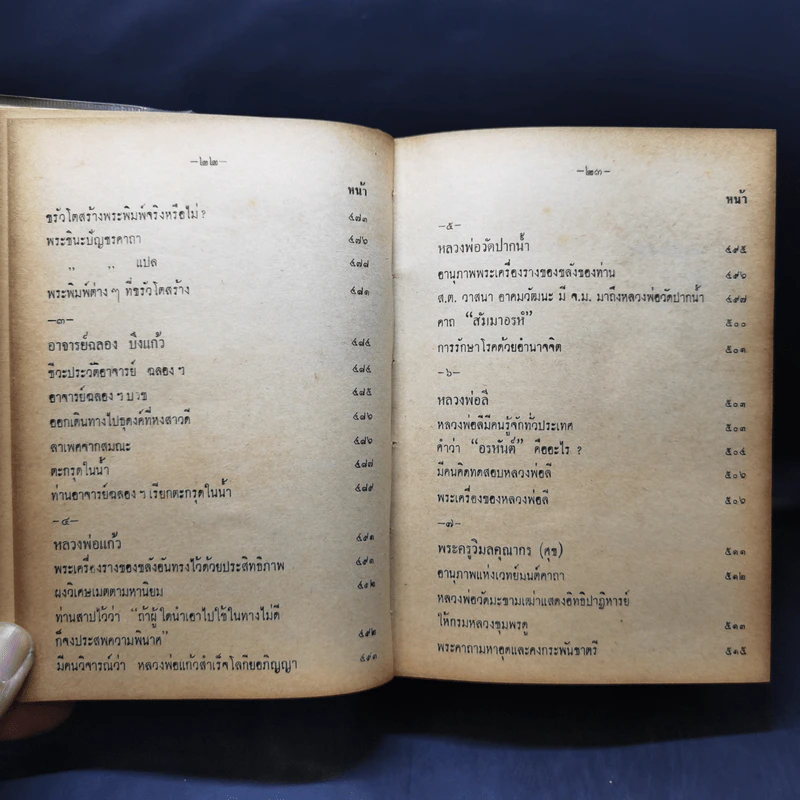 —๒๒—
หน้า
ขรัวโตสร้างพระพิมพ์จริงหรือไม่? ๔๗๓
พระชินะบัญชรคาถา ๔๗๖
,, ,, แปล ๔๗๗
พระพิมพ์ต่าง ๆ ที่ขรัวโตสร้าง ๔๘๑
—๓—
อาจารย์ฉลอง บึงแก้ว ๔๘๔
ชีวะประวัติอาจารย์ ฉลอง ฯ ๔๘๔
อาจารย์ฉลอง ฯ บวช ๔๘๕
ออกเดินทางไปธุดงค์ที่หงสาวดี ๔๘๖
ลาเพศจากสมณะ ๔๘๖
ตะกรุดในน้ำ ๔๘๗
ท่านอาจารย์ฉลอง ฯ เรียกตะกรุดในน้ำ ๔๘๙
—๔—
หลวงพ่อแก้ว ๔๙๑
พระเครื่องรางของขลังอันทรงไว้ด้วยประสิทธิภาพ ๔๙๑
ผงวิเศษเมตตามหานิยม ๔๙๒
ท่านสาปไว้ว่า “ถ้าผู้ใดนำเอาไปใช้ในทางไม่ดี
ก็จงประสพความพินาศ” ๔๙๒
มีคนวิจารณ์ว่า หลวงพ่อแก้วสำเร็จโลกียอภิญญา ๔๙๓
—๒๓—
หน้า
—๕—
หลวงพ่อวัดปากน้ำ ๔๙๕
อานุภาพพระเครื่องรางของขลังของท่าน ๔๙๖
ส.ต. วาสนา อาคมวัฒนะ มี จ.ม. มาถึงหลวงพ่อวัดปากน้ำ ๔๙๗
คาถ “สัมมาอรหํ” ๕๐๐
การรักษาโรคด้วยอำนาจจิต ๕๐๑
—๖—
หลวงพ่อลี ๕๐๓
หลวงพ่อลีมีคนรู้จักทั่วประเทศ ๕๐๓
คำว่า “อรหันต์” คืออะไร ? ๕๐๔
มีคนคิดทดสอบหลวงพ่อลี ๕๐๖
พระเครื่องของหลวงพ่อลี ๕๐๖
—๗—
พระครูวิมลคุณากร (ศุข) ๕๑๑
อานุภาพแห่งเวทย์มนต์คาถา ๕๑๒
หลวงพ่อวัดมะขามเฒ่าแสดงอิทธิปาฏิหารย์
ให้กรมหลวงชุมพรดู ๕๑๓
พระคาถามหาอุดและคงกระพันชาตรี ๕๑๕